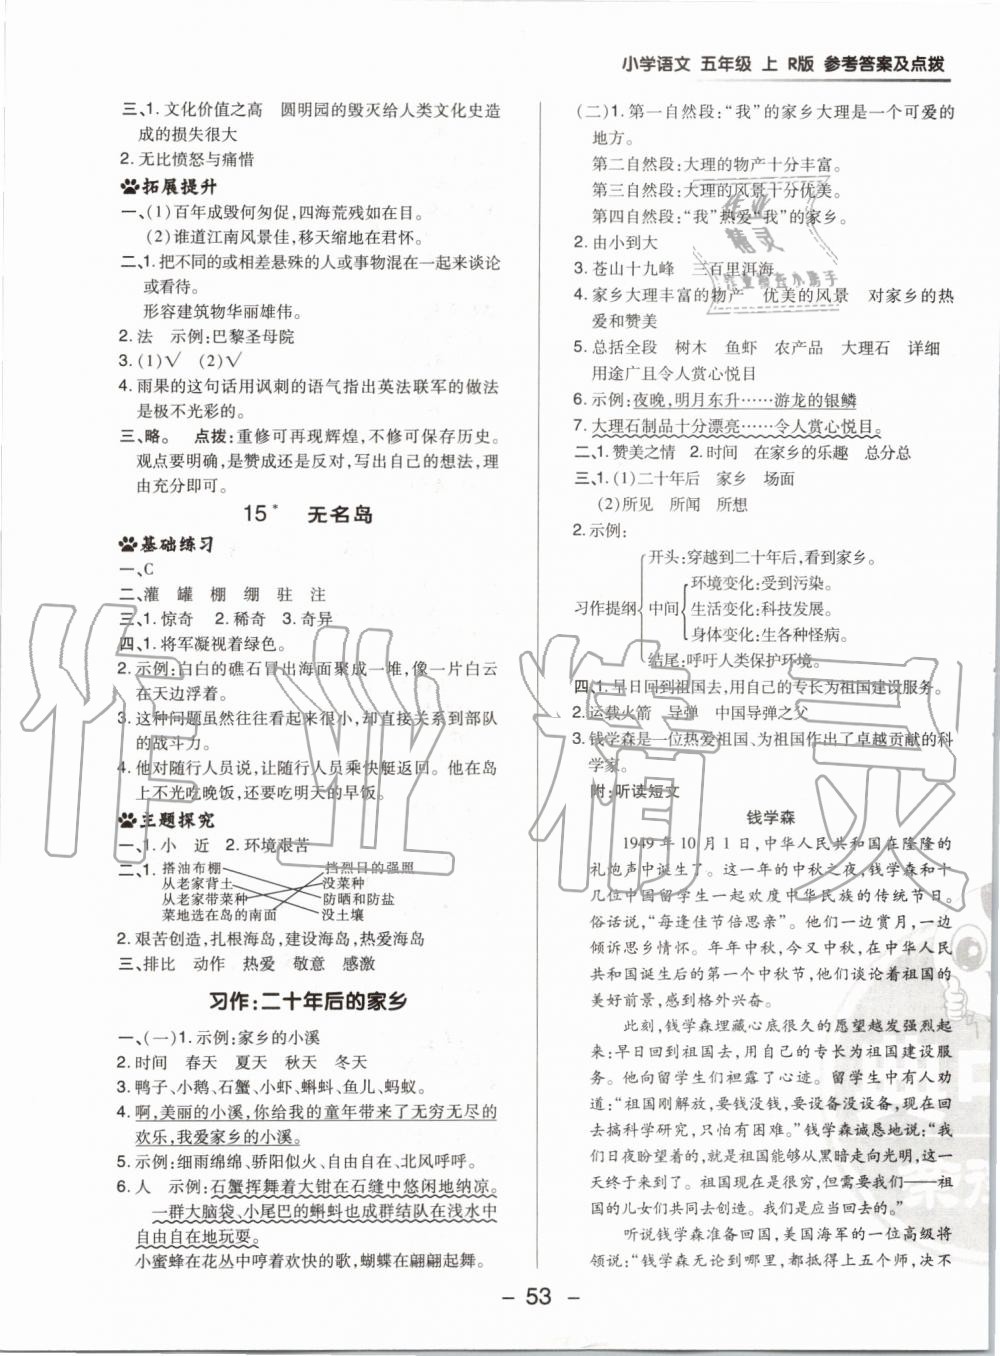 小学语文 五年级 上 R版 参考答案及点拨
三、1. 文化价值之高 圆明园的毁灭给人类文化史造
成的损失很大
2. 无比愤怒与痛惜
拓展提升
一、(1)百年成毁何匆促,四海荒残如在目。
(2)谁道江南风景佳,移天缩地在君怀。
二、1. 把不同的或相差悬殊的人或事物混在一起谈论
或看待。
形容建筑物华丽雄伟。
2. 法 示例:巴黎圣母院
3. (1)√ (2)√
4. 雨果的这句话用讽刺的语气指出英法联军的做法
是极不光彩的。
三、略。 点拨:重修可再现辉煌,不修可保存历史。
观点要明确,是赞成还是反对,写出自己的想法,理
由充分即可。
15* 无名岛
基础练习
一、C
二、灌 罐 棚 绷 驻 注
三、1. 惊奇 2. 稀奇 3. 奇异
四、1. 将军凝视着绿色。
2. 示例:白白的礁石冒出海面聚成一堆,像一片白云
在天边浮着。
3. 这种问题虽然往往看起来很小,却直接关系到部队
的战斗力。
4. 他对随行人员说,让随行人员乘快艇返回。他在岛
上不光吃晚饭,还要吃明天的早饭。
主题探究
一、1. 小 近 2. 环境艰苦
二、1. 搭油布棚 挡烈日的强照
从老家背土 没菜种
从老家带菜种 防晒和防盐
菜地选在岛的南面 没土壤
2. 艰苦创造,扎根海岛,建设海岛,热爱海岛
三、排比 动作 热爱 敬意 感激
习作:二十年后的家乡
一、(一)1. 示例:家乡的小溪
2. 时间 春天 夏天 秋天 冬天
3. 鸭子、小鹅、石蟹、小虾、蝌蚪、鱼儿、蚂蚁。
4. 啊,美丽的小溪,你给我的童年带来了无穷无尽的
欢乐,我爱家乡的小溪。
5. 示例:细雨绵绵、骄阳似火、北风呼呼。
6. 人 示例:石蟹挥舞着大钳在石缝中悠闲地纳凉。
一群大脑袋、小尾巴的蝌蚪也成群结队在浅水中
自由自在地玩耍。
小蜜蜂在花丛中哼着欢快的歌,蝴蝶在翩翩起舞。
(二)1. 第一自然段:“我”的家乡大理是一个可爱的
地方。
第二自然段:大理的物产十分丰富。
第三自然段:大理的风景十分优美。
第四自然段:“我”热爱“我”的家乡。
2. 由小到大
3. 苍山十九峰 三百里洱海
4. 家乡大理丰富的物产 优美的风景 对家乡的热
爱和赞美
5. 总括全段 树木 鱼虾 农产品 大理石 详细
用途广且令人赏心悦目
6. 示例:夜晚,明月东升……游龙的银鳞
7. 大理石制品十分漂亮……令人赏心悦目。
二、1. 赞美之情 2. 时间 在家乡的乐趣 总分总
三、1. (1)二十年后 家乡 场面
(2)所见 所闻 所想
2. 示例:
习作提纲
开头:穿越到二十年后,看到家乡。
中间
环境变化:受到污染。
生活变化:科技发展。
身体变化:生各种怪病。
结尾:呼吁人类保护环境。
四、1. 早日回到祖国去,用自己的专长为祖国建设服务。
2. 运载火箭 导弹 中国导弹之父
3. 钱学森是一位热爱祖国、为祖国作出了卓越贡献的科
学家。
附:听读短文
钱学森
1949年10月1日,中华人民共和国在隆隆的
礼炮声中诞生了。这一年的中秋夜,钱学森和十
几位中国留学生一起欢度中华民族的传统节日。
俗话说,“每逢佳节倍思亲”。他们一边赏月,一边
倾诉思乡情怀。年年中秋,今又中秋,在中华人民
共和国诞生后的第一个中秋节,他们谈论着祖国的
美好前景,感到格外兴奋。
此刻,钱学森埋藏心底很久的愿望越发强烈起
来:早日回到祖国去,用自己的专长为祖国建设服
务。他向留学生们袒露了心迹。留学生中有人劝
道:“祖国刚解放,要钱没钱,要设备没设备,现在回
去搞科学研究,只怕有困难。”钱学森诚恳地说:“我
们日夜盼望着的就是祖国能够从黑暗走向光明,这一
天终于来到了。祖国现在是很穷,但需要我们——祖
国的儿女们共同去创造。我们是应当回去的。”
听说钱学森准备回国,美国海军的一位高级将
领说:“钱学森无论到哪里,都抵得上五个师,决不
- 53 -
作业精灵
作业精灵
作业检查小助手